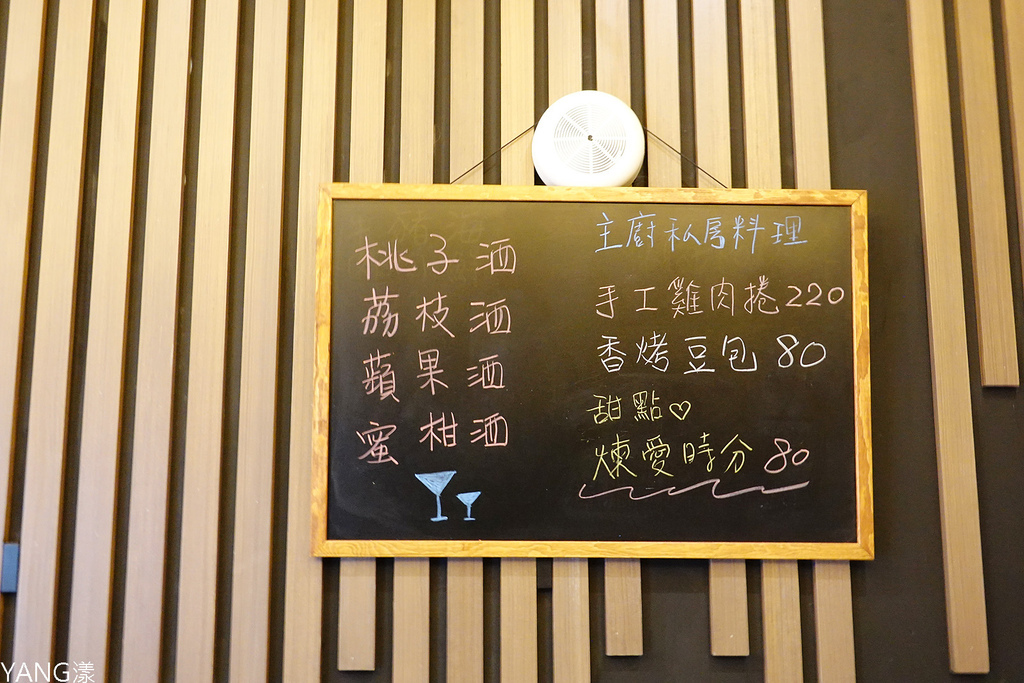 桃子酒
荔枝酒
蘋果酒
蜜柑酒
主廚私房料理
手工雞肉捲220
香烤豆包 80
甜點♡
煉愛時分 80
YANG漾